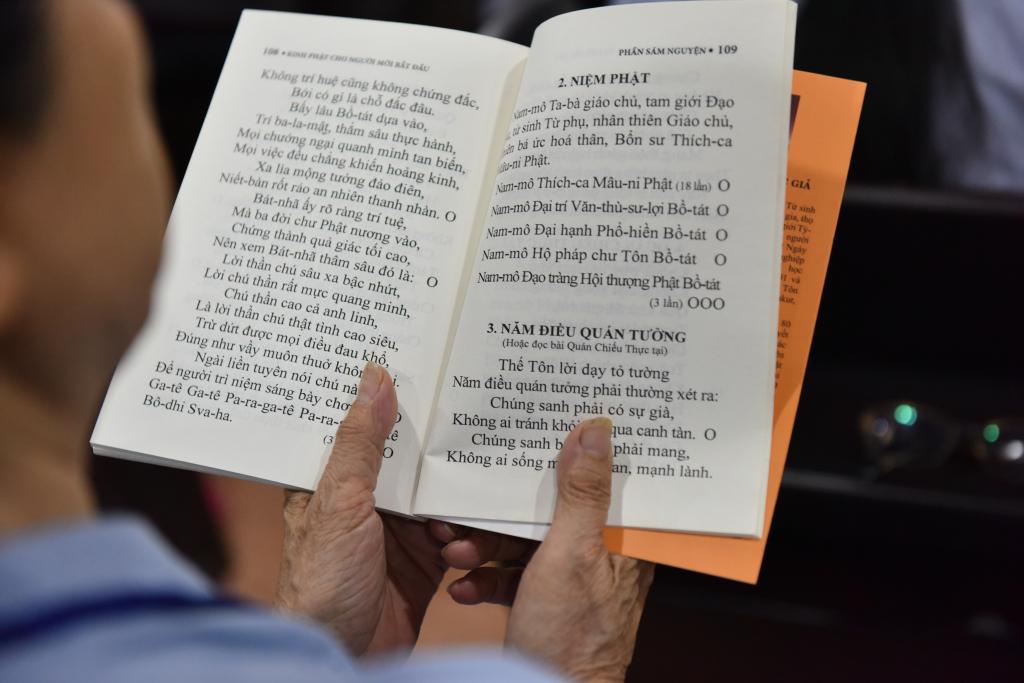 108 • KINH PHẬT CHO NGƯỜI MỚI BẮT ĐẦU
Không trí huệ cũng không chứng đắc,
Bởi có gì là chỗ đắc đâu.
Bấy lâu Bồ-tát dựa vào,
Trí ba-la-mật, thẳm sâu thực hành,
Mọi chướng ngại quanh mình tan biến,
Mọi việc đều chẳng khiến hoảng kinh,
Xa lìa mộng tưởng đảo điên,
Niết-bàn rốt ráo an nhiên thanh nhàn. O
Bát-nhã ấy rõ ràng trí tuệ,
Mà ba đời chư Phật nương vào,
Chứng thành quả giác tối cao,
Nên xem Bát-nhã thẳm sâu đó là: O
Lời thần chú sâu xa bậc nhứt,
Lời chú thần rất mực quang minh,
Chú thần cao cả anh linh,
Là lời thần chú thật tình cao siêu,
Trừ dứt được mọi điều đau khổ,
Đúng như vầy muôn thuở không
Ngài liền tuyên nói chú
Để người trì niệm sáng bày
Ga-tê Ga-tê Pa-ra-ga-tê
Bô-dhi Sva-ha.
O
PHẦN SÁM NGUYỆN • 109
2. NIỆM PHẬT
Nam-mô Ta-bà giáo chủ, tam giới Đạo
tứ sinh Từ phụ, nhân thiên Giáo chủ,
bá ức hoá thân, Bổn sư Thích-ca
Mâu-ni Phật.
Nam-mô Thích-ca Mâu-ni Phật (18 lần) O
Nam-mô Đại trí Văn-thù-sư-lợi Bồ-tát O
Nam-mô Đại hạnh Phổ-hiền Bồ-tát O
Nam-mô Hộ pháp chư Tôn Bồ-tát O
Nam-mô Đạo tràng Hội thượng Phật Bồ-tát
(3 lần) OOO
3. NĂM ĐIỀU QUÁN TƯỞNG
(Hoặc đọc bài Quán Chiếu Thực tại)
Thế Tôn lời dạy tỏ tường
Năm điều quán tưởng phải thường xét ra:
Chúng sanh phải có sự già,
Không ai tránh khỏi qua canh tàn. O
Chúng sanh phải mang,
Không ai sống mạnh lành.
GIẢ
Từ sinh
gia, thọ
giới Tỳ-
người
nghiệp
học
và
Tôn
80